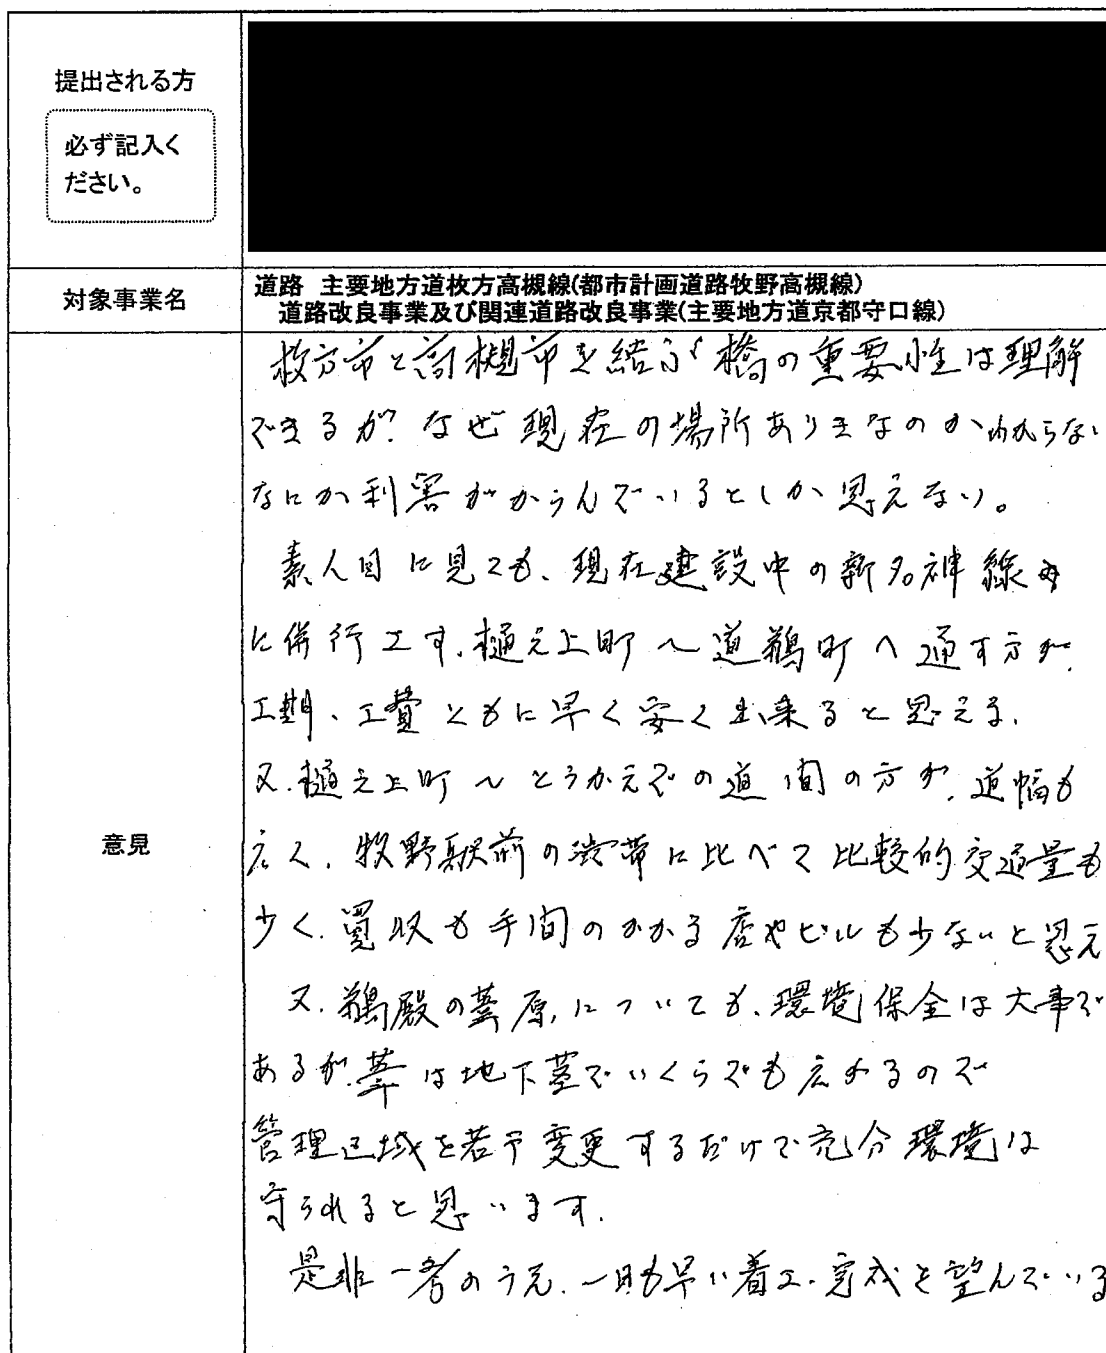 提出される方
必ず記入く
ださい。
対象事業名
道路 主要地方道枚方高槻線(都市計画道路牧野高槻線)
道路改良事業及び関連道路改良事業(主要地方道京都守口線)
意見
枚方市と高槻市を結ぶ橋の重要性は理解
できるが、なぜ現在の場所ありきなのかわからない
なにか利害がからんでいるとしか思えない。
素人目に見ても、現在建設中の新名神線
に併行工す、樋之上町〜道鵜町へ通す方が、
工期、工費ともに早く安く出来ると思える、
又、樋之上町〜とうかえでの道間の方が、道幅も
広く、牧野駅前の渋帯に比べて比較的交通量も
少く、買収も手間のかかる店やビルも少ないと思え
又、鵜殿の葦原、についても、環境保全は大事で
あるが、葦は地下茎でいくらでも広がるので
管理区域を若干変更するだけで充分環境は
守られると思います。
是非一考のうえ、一日も早い着工・完成を望んでいる